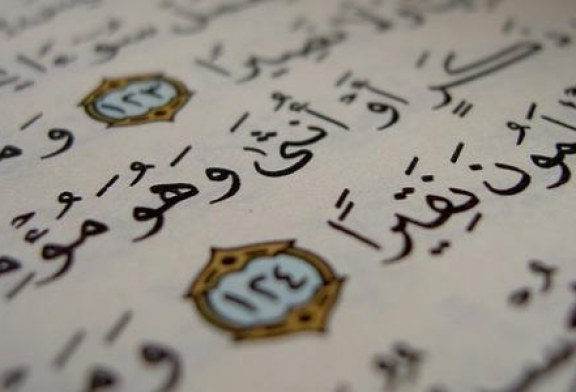 وَلَا نَصِيرًا ١٢٣ وَمَ
ذَكَرٍ أَوْ أُنثَىٰ وَهُوَ مُؤْمِ
لَمُونَ نَقِيرًا ١٢٤ وَمَ